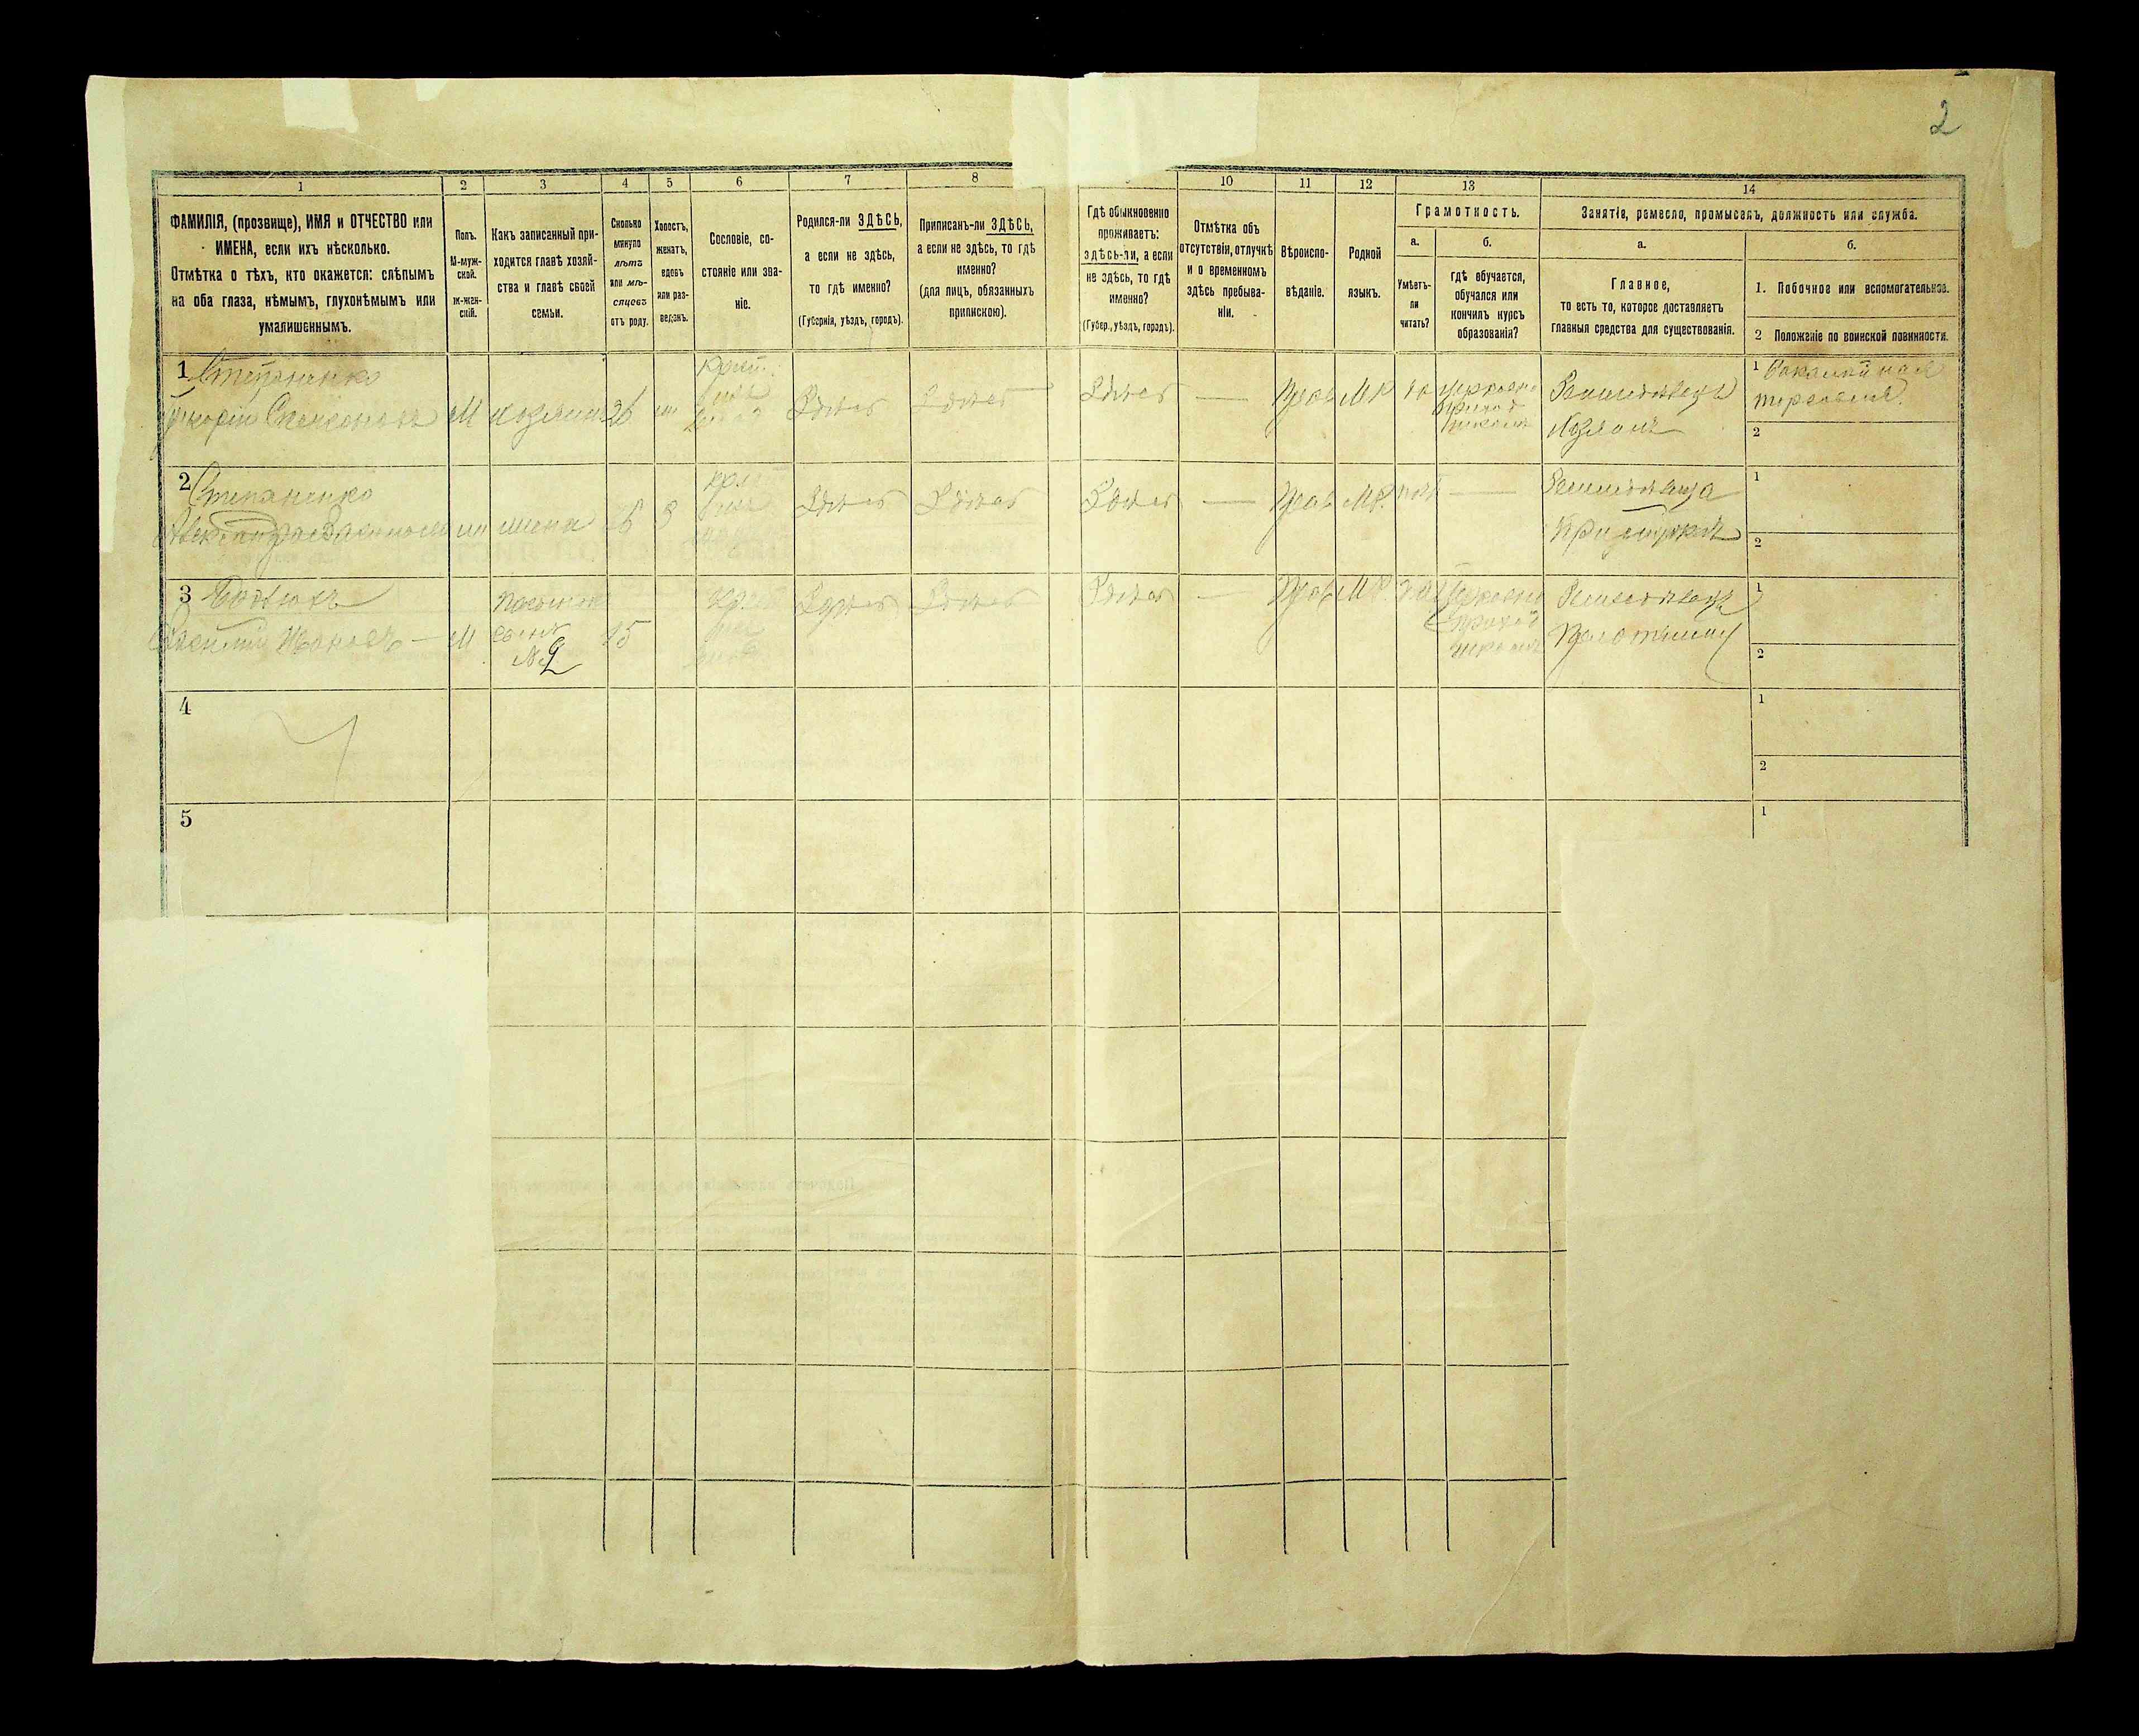 2
1
2
3
4
5
6
7
8
10
11
12
13
14
ФАМИЛІЯ, (прозвище), ИМЯ и ОТЧЕСТВО или
ИМЕНА, если ихъ нѣсколько.
Отмѣтка о тѣхъ, кто окажется: слѣпымъ
на оба глаза, нѣмымъ, глухонѣмымъ или
умалишеннымъ.
Полъ.
М-муж-
ской.
ж-жен-
скій.
Какъ записанный при-
ходится главѣ хозяй-
ства и главѣ своей
семьи.
Сколько
минуло
лѣтъ
или мѣ-
сяцевъ
отъ роду.
Холостъ,
женатъ,
вдовъ
или раз-
веденъ.
Сословіе, со-
стояніе или зва-
ніе.
Родился-ли ЗДѢСЬ,
а если не здѣсь,
то гдѣ именно?
(Губернія, уѣздъ, городъ).
Приписанъ-ли ЗДѢСЬ,
а если не здѣсь, то гдѣ
именно?
(для лицъ, обязанныхъ
припискою).
Гдѣ обыкновенно
проживаетъ:
здѣсь-ли, а если
не здѣсь, то гдѣ
именно?
(Губер., уѣздъ, городъ).
Отмѣтка объ
отсутствіи, отлучкѣ
и о временномъ
здѣсь пребыва-
ніи.
Вѣроиспо-
вѣданіе.
Родной
языкъ.
Грамотность.
а.
Умѣетъ-
ли
читать?
б.
гдѣ обучается,
обучался или
кончилъ курсъ
образованія?
Занятіе, ремесло, промыселъ, должность или служба.
а.
Главное,
то есть то, которое доставляетъ
главныя средства для существованія.
б.
1. Побочное или вспомогательное.
2 Положеніе по воинской повинности.
1 Степаненко
М
хозяинъ
26
Здѣсь
Здѣсь
Здѣсь
—
Прав
МР
да
Земледѣлецъ
Хозяинъ
1 Бакалейная
торговля
2
2 Степаненко
жена
Здѣсь
Здѣсь
Здѣсь
—
Прав
МР.
нѣтъ
—
1
2
3
Василій Ивановъ — М
сынъ
№ 2
15
Здѣсь
Здѣсь
Здѣсь
—
Прав
МР.
да
Земледѣлецъ
1
2
4
1
2
5
1